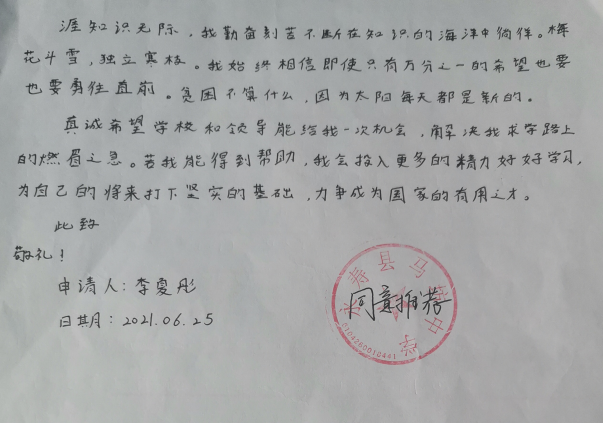 涯知识无际，我勤奋刻苦不断在知识的海洋中徜徉。梅
花斗雪，独立寒枝。我始终相信即使只有万分之一的希望也要
也要勇往直前。贫困不算什么，因为太阳每天都是新的。
真诚希望学校和领导能给我一次机会，解决我求学路上
的燃眉之急。若我能得到帮助，我会投入更多的精力好好学习，
为自己的将来打下坚实的基础，力争成为国家的有用之才。
此致
敬礼！
申请人：李夏彤
日期：2021.06.25
永寿县马
中学
同意推荐